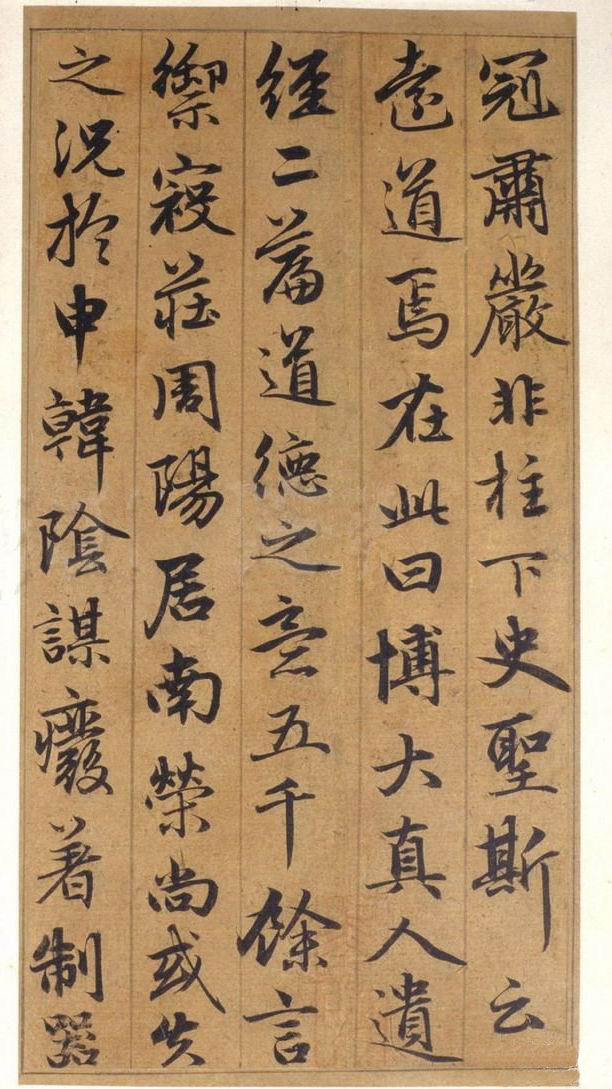 冠肅嚴非柱下史聖斯云
遠道焉在此曰博大真人遺
經二篇道德之意五千餘言
禦寇莊周陽居南榮尚或失
之況於申韓陰謀癈著制器